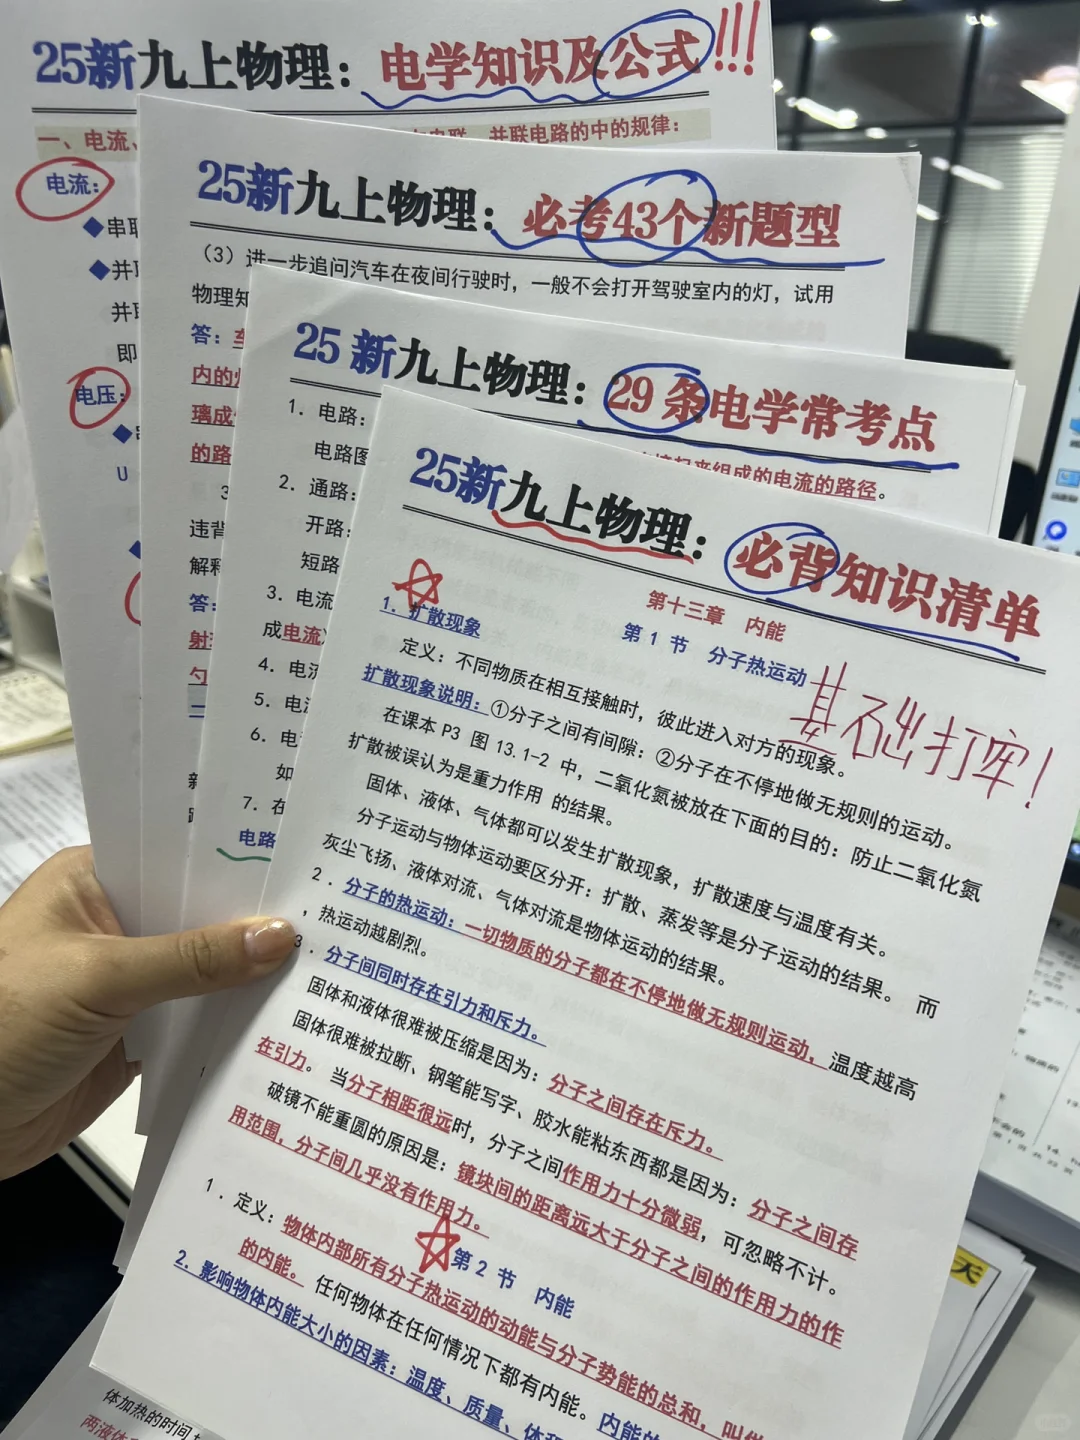 25新九上物理：电学知识及公式!!!
一、电流、
并联电路的中的规律：
电流：
◆串联
◆并联
并
即
电压：
U
25新九上物理：必考43个新题型
（3）进一步追问汽车在夜间行驶时，一般不会打开驾驶室内的灯，试用
物理知
答：车
内的灯
璃成
的路
3
违背
解释
答：
射
勺
25 新九上物理：29 条电学常考点
1．电路：
接起来组成的电流的路径。
电路图
2．通路：
开路：
短路
3．电流
成电流
4．电流
5．电流
6．电
如
7．在
电路
25新九上物理：必背知识清单
第十三章 内能
第 1 节 分子热运动
基础打牢！
1．扩散现象
定义：不同物质在相互接触时，彼此进入对方的现象。
扩散现象说明：①分子之间有间隙：②分子在不停地做无规则的运动。
在课本 P3 图 13.1-2 中，二氧化氮被放在下面的目的：防止二氧化氮
扩散被误认为是重力作用 的结果。
固体、液体、气体都可以发生扩散现象，扩散速度与温度有关。
分子运动与物体运动要区分开：扩散、蒸发等是分子运动的结果。 而
灰尘飞扬、液体对流、气体对流是物体运动的结果。
2．分子的热运动：一切物质的分子都在不停地做无规则运动，温度越高
，热运动越剧烈。
3．分子间同时存在引力和斥力。
固体和液体很难被压缩是因为：分子之间存在斥力。
固体很难被拉断、钢笔能写字、胶水能粘东西都是因为：分子之间存
在引力。 当分子相距很远时，分子之间作用力十分微弱，可忽略不计。
破镜不能重圆的原因是：镜块间的距离远大于分子之间的作用力的作
用范围，分子间几乎没有作用力。
第 2 节 内能
1．定义：物体内部所有分子热运动的动能与分子势能的总和，叫做
的内能。 任何物体在任何情况下都有内能。内能的
2．影响物体内能大小的因素：温度、质量、体积
体加热的时间
两液体
天